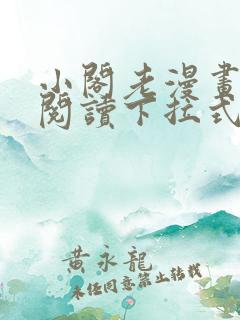 小閣老漫畫
閱讀下拉式
黃永龍
未經同意禁止轉載